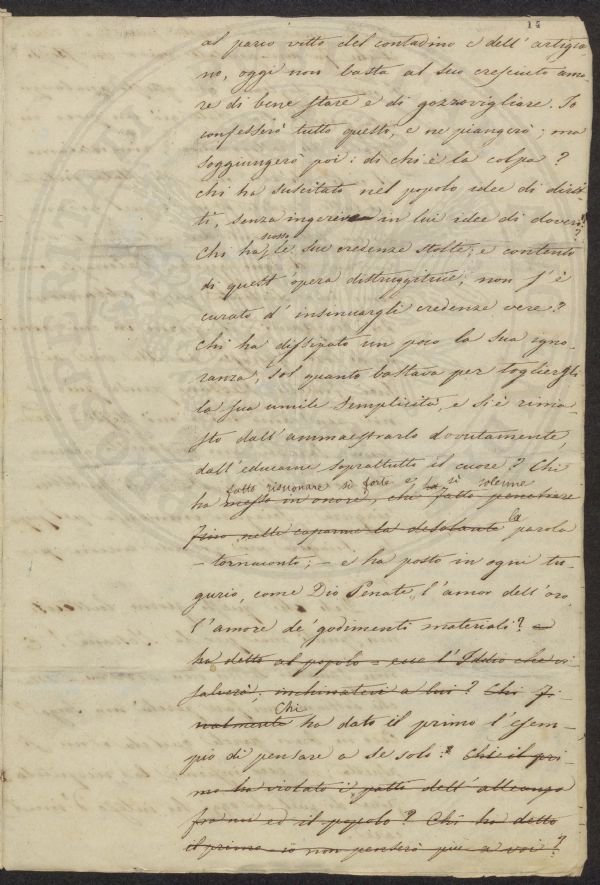 14
al parco vitto del contadino e dell'artigia-
no, oggi non basta al suo cresciuto amo-
re di bene stare e di gozzovigliare. Io
confesserò tutto questo, e ne piangerò; ma
soggiungerò poi: di chi è la colpa?
Chi ha suscitato nel popolo idee di dirit-
ti, senza ingerire in lui idee di doveri?
Chi ha mosso le sue credenze stolte; e contento
di quest'opera distruggitrice, non s'è
curato d'insinuargli credenze vere?
Chi ha dissipato un poco la sua igno-
ranza, sol quanto bastava per togliergli
la sua umile semplicità, e si è rima-
sto dall'ammaestrarlo dovutamente,
dall'educarne soprattutto il cuore? Chi
fatto risuonare sì forte e sì solenne
ha messo in onore, chi fatto penetrare
fino nelle capanne la desolante la parola
- tornaconto; - e ha posto in ogni tu-
gurio, come Dio Penate, l'amor dell'oro,
l'amore de' godimenti materiali?
ha detto al popolo - ecco l'Iddio che vi
salverà; inchinatevi a lui? Chi fi-
nalmente Chi ha dato il primo l'esem-
pio di pensare a se solo? Chi il pri-
mo ha violato i patti dell'alleanza
fra noi ed il popolo? Chi ha detto
il primo - io non penserò più a voi?